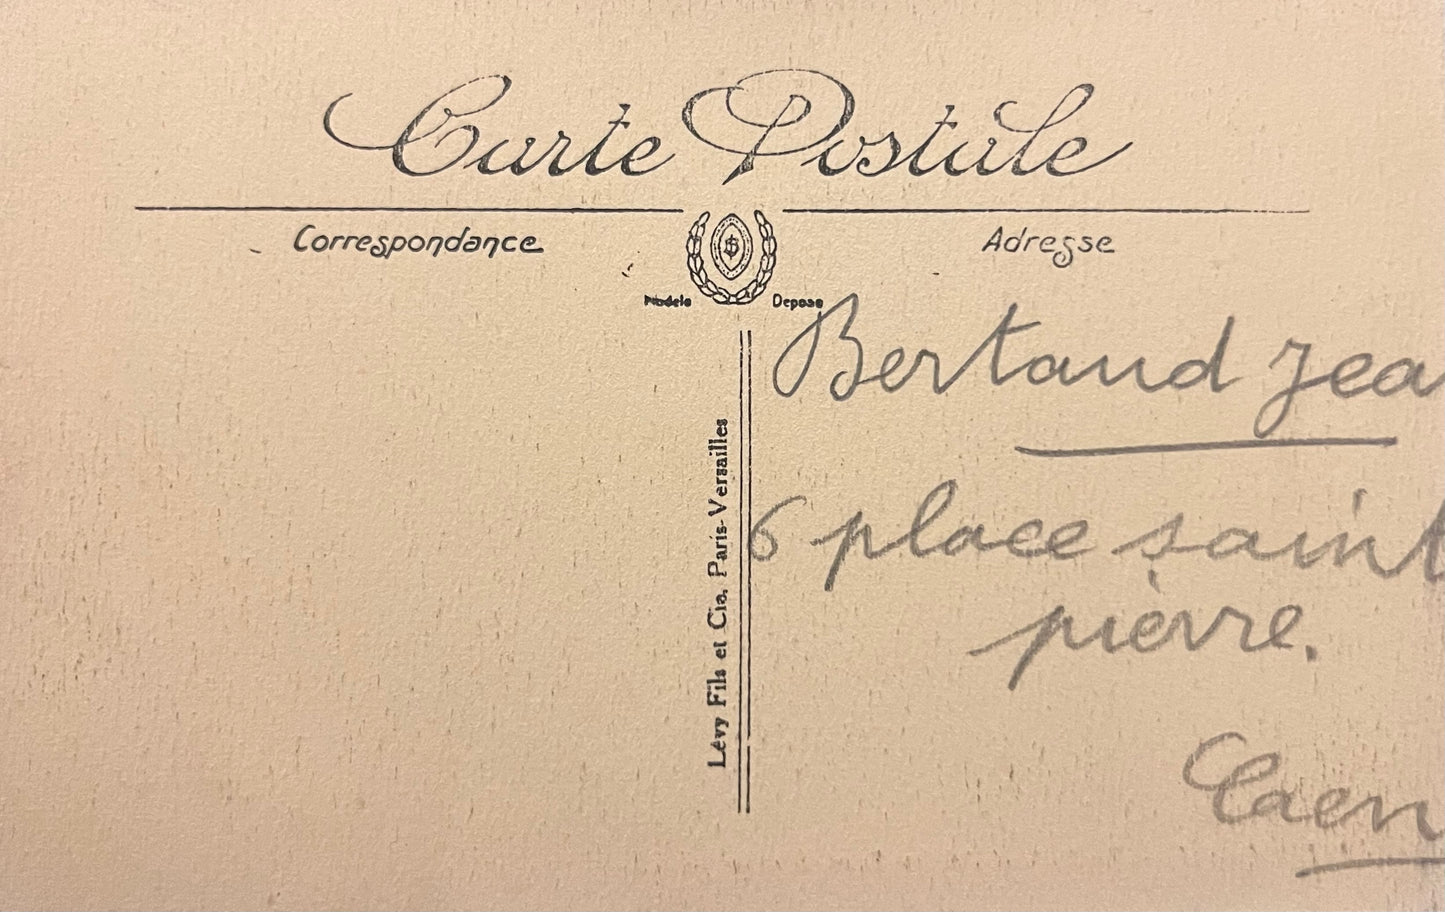 Carte Postale
Correspondance
Adresse
$
Modele Depose
Lévy Fils et Cie, Paris-Versailles
Bertaud Jea
6 place saint
pierre.
Caen